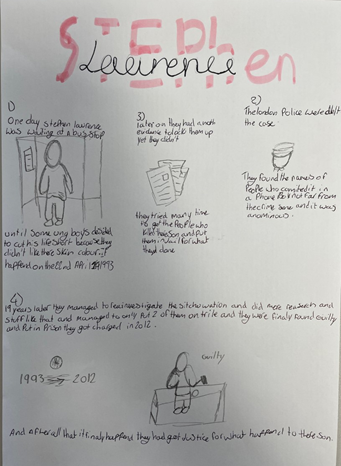 STEPhen
Lawrence
1)
One day stephen lawrence
was waiting at a bus stop
until some boys decided
to cut his life short because they
didn't like there skin colour. it
happend on the 22nd April 1993
3)
later on they had enoth
evidence to lock them up
yet they didn't
they tried many time
to get the People who
killed there son and put
them in jail for what
they'd done
2)
The london Police were delt
the case
They found the names of
People who comited it in
a Phone box not far from
the crime scene and it was
anonimous.
4)
19 years later they managed to reinvestigate the and did more research and
stuff like that and managed to only Put 2 of them on trile and they were finaly found Guilty
and Put in Prison they got charged in 2012.
1993 2012
Guilty
And after all that it finaly happend they had got Justice for what happend to there son.